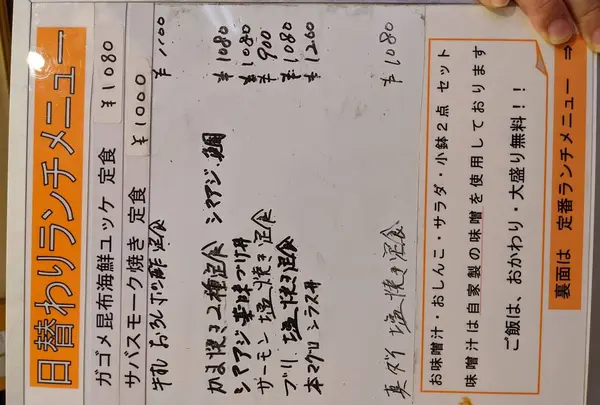 日替わりランチメニュー
ガゴメ昆布海鮮ユッケ 定食 ¥1080
サバスモーク焼き 定食 ¥1000
牛乳 おろしポン酢定食 ¥1100
かま焼き2種定食 シマアジ・鯛 ¥1080
シマアジ 薬味づけ丼 ¥1080
サーモン 塩焼き定食 ¥900
ブリ 塩焼き定食 ¥1080
本マグロ シラス丼 ¥1200
真ダイ 塩焼き定食 ¥1080
お味噌汁・おしんこ・サラダ・小鉢2点 セット
味噌汁は自家製の味噌を使用しております
ご飯は、おかわり・大盛り無料!!
裏面は 定番ランチメニュー ⇒